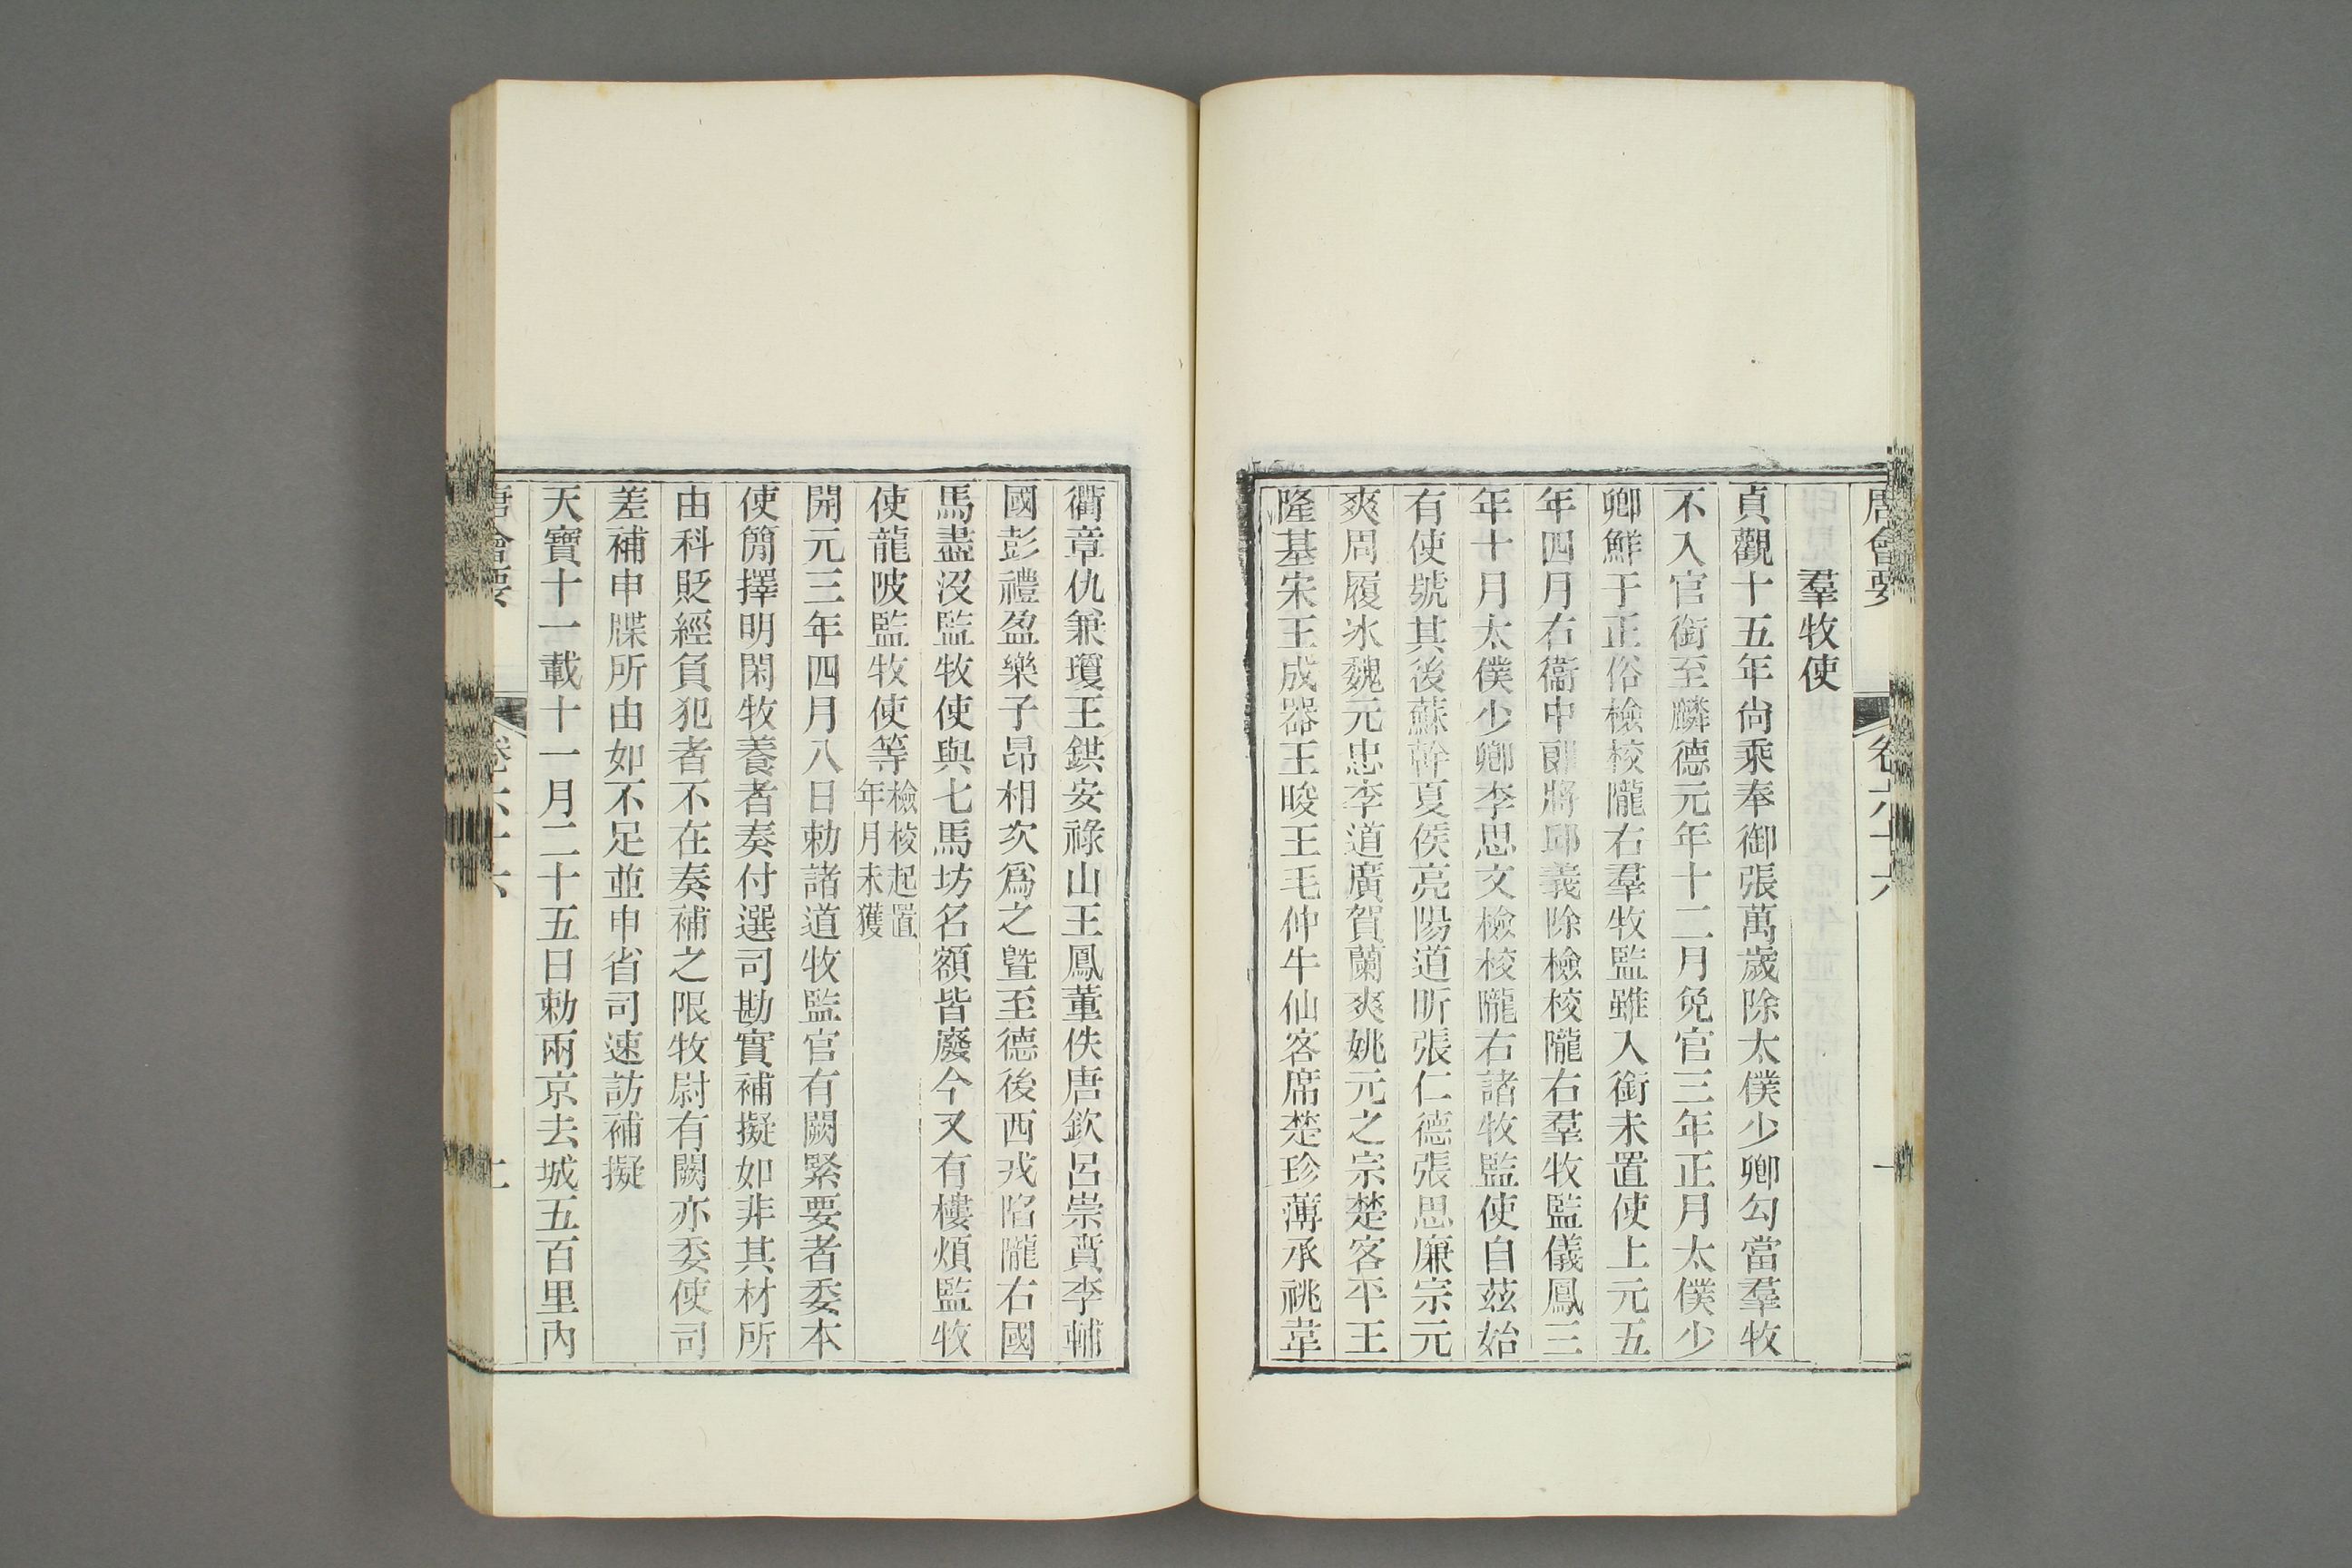 唐會要 卷六十六
羣牧使
貞觀十五年尙乘奉御張萬歲除太僕少卿勾當羣牧
不入官銜至麟德元年十二月免官三年正月太僕少
卿鮮于正俗檢校隴右羣牧監雖入銜未置使上元五
年四月右衞中郎將邱義除檢校隴右羣牧監儀鳳三
年十月太僕少卿李思文檢校隴右諸牧監使自茲始
有使號其後蘇幹夏侯亮陽道昕張仁德張思廉宗元
爽周履冰魏元忠李道廣賀蘭爽姚元之宗楚客平王
隆基宋王成器王晙王毛仲牛仙客席楚珍薄承祧韋
衢章仇兼瓊王鉷安祿山王鳳董佚唐欽呂崇賁李輔
國彭禮盈樂子昂相次爲之曁至德後西戎陷隴右國
馬盡沒監牧使與七馬坊名額皆廢今又有樓煩監牧
使龍陂監牧使等檢校起置
年月未獲
開元三年四月八日勅諸道牧監官有闕緊要者委本
使簡擇明閑牧養者奏付選司勘實補擬如非其材所
由科貶經負犯者不在奏補之限牧尉有闕亦委使司
差補申牒所由如不足並申省司速訪補擬
天寶十一載十一月二十五日勅兩京去城五百里內
唐會要 卷六十六